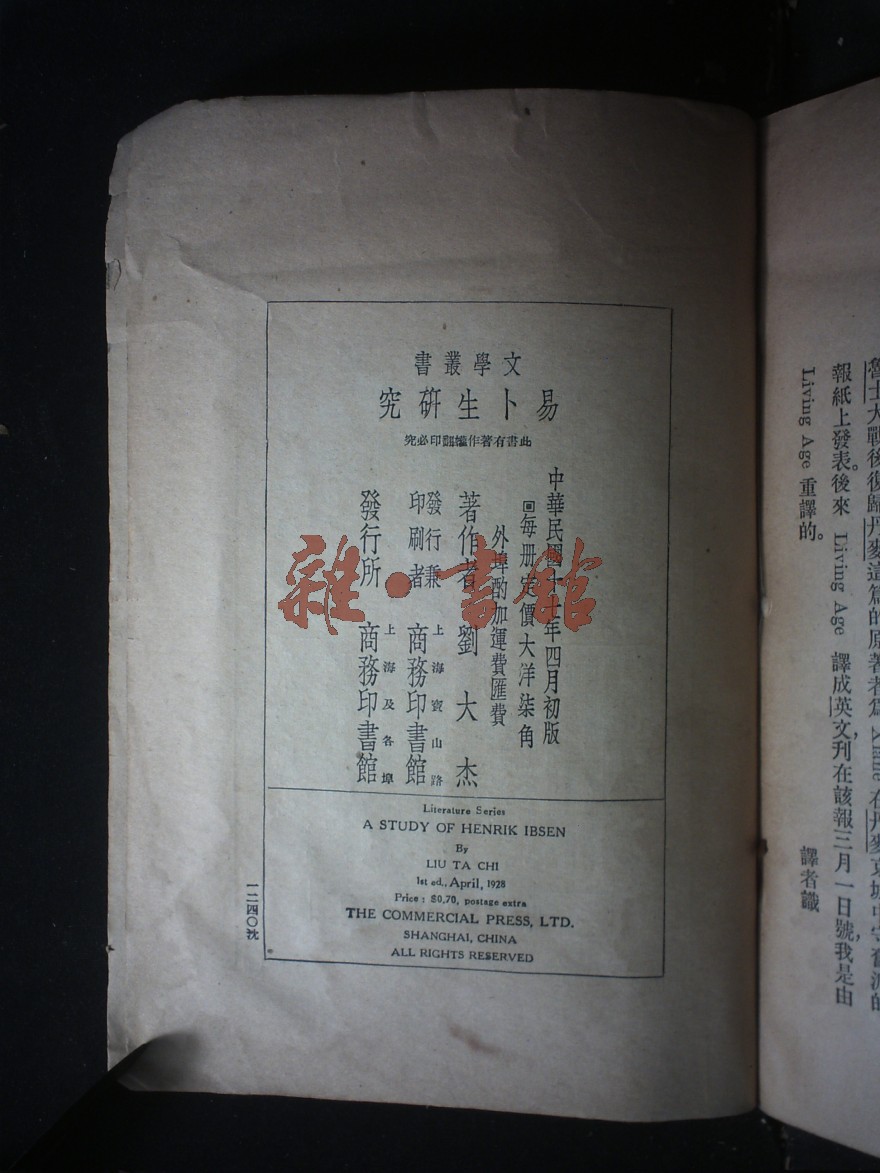 文學叢書
易卜生研究
此書有著作權翻印必究
中華民國十七年四月初版
回每册定價大洋柒角
外埠酌加運費匯費
著作者 劉大杰
發行兼印刷者 上海寶山路 商務印書館
發行所 上海及各埠 商務印書館
Literature Series
A STUDY OF HENRIK IBSEN
By
LIU TA CHI
1st ed., April, 1928
Price : $0,70, postage extra
THE COMMERCIAL PRESS, LTD.
SHANGHAI, CHINA
ALL RIGHTS RESERVED
一二四〇沈
雜·書館
魯士大戰後復歸丹麥這篇的原著者爲 在丹麥京城中守舊派的
報紙上發表。後來 Living Age 譯成英文,刊在該報三月一日號,我是由
Living Age 重譯的。
譯者識